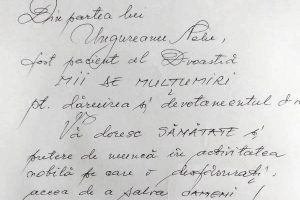 Din partea lui
Ungureanu
fost pacient al Dvoastră
MII DE MULȚUMIRI
pt. dăruirea și devotamentul
Vă doresc SĂNĂTATE și
putere de muncă în activitatea
nobilă pe care o desfășurați,
aceea de a salva OAMENI !